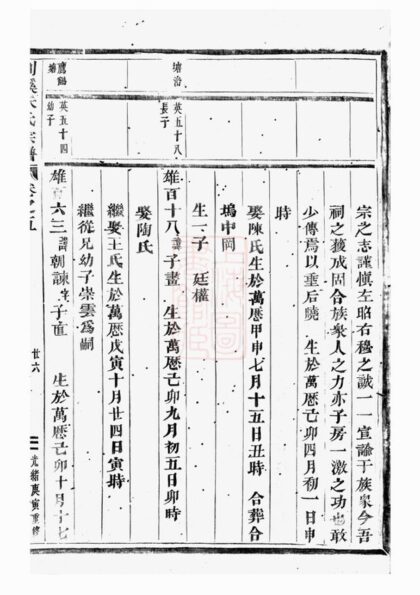 宗之志謹愼左昭右穆之誠一一宣諭于族衆今吾
祠之獲成固合族衆人之力亦子房一激之功也敢
少傳焉以重后曉 生於萬曆己卯四月初一日申
時
娶陳氏生於萬曆甲申七月十五日丑時 合葬合
塢中岡
生一子 廷權
塘沿 英五十八
長子
雄百十八 諱子晝 生於萬曆己卯九月初五日卯時
娶陶氏
繼娶王氏生於萬曆戊寅十月廿四日寅時
繼從兄幼子崇雲爲嗣
塘 英五十四
幼子
雄 六三 諱朝諫 字子直 生於萬曆己卯十月十七
溪 氏宗譜 卷之五
廿六
光緒庚寅重修